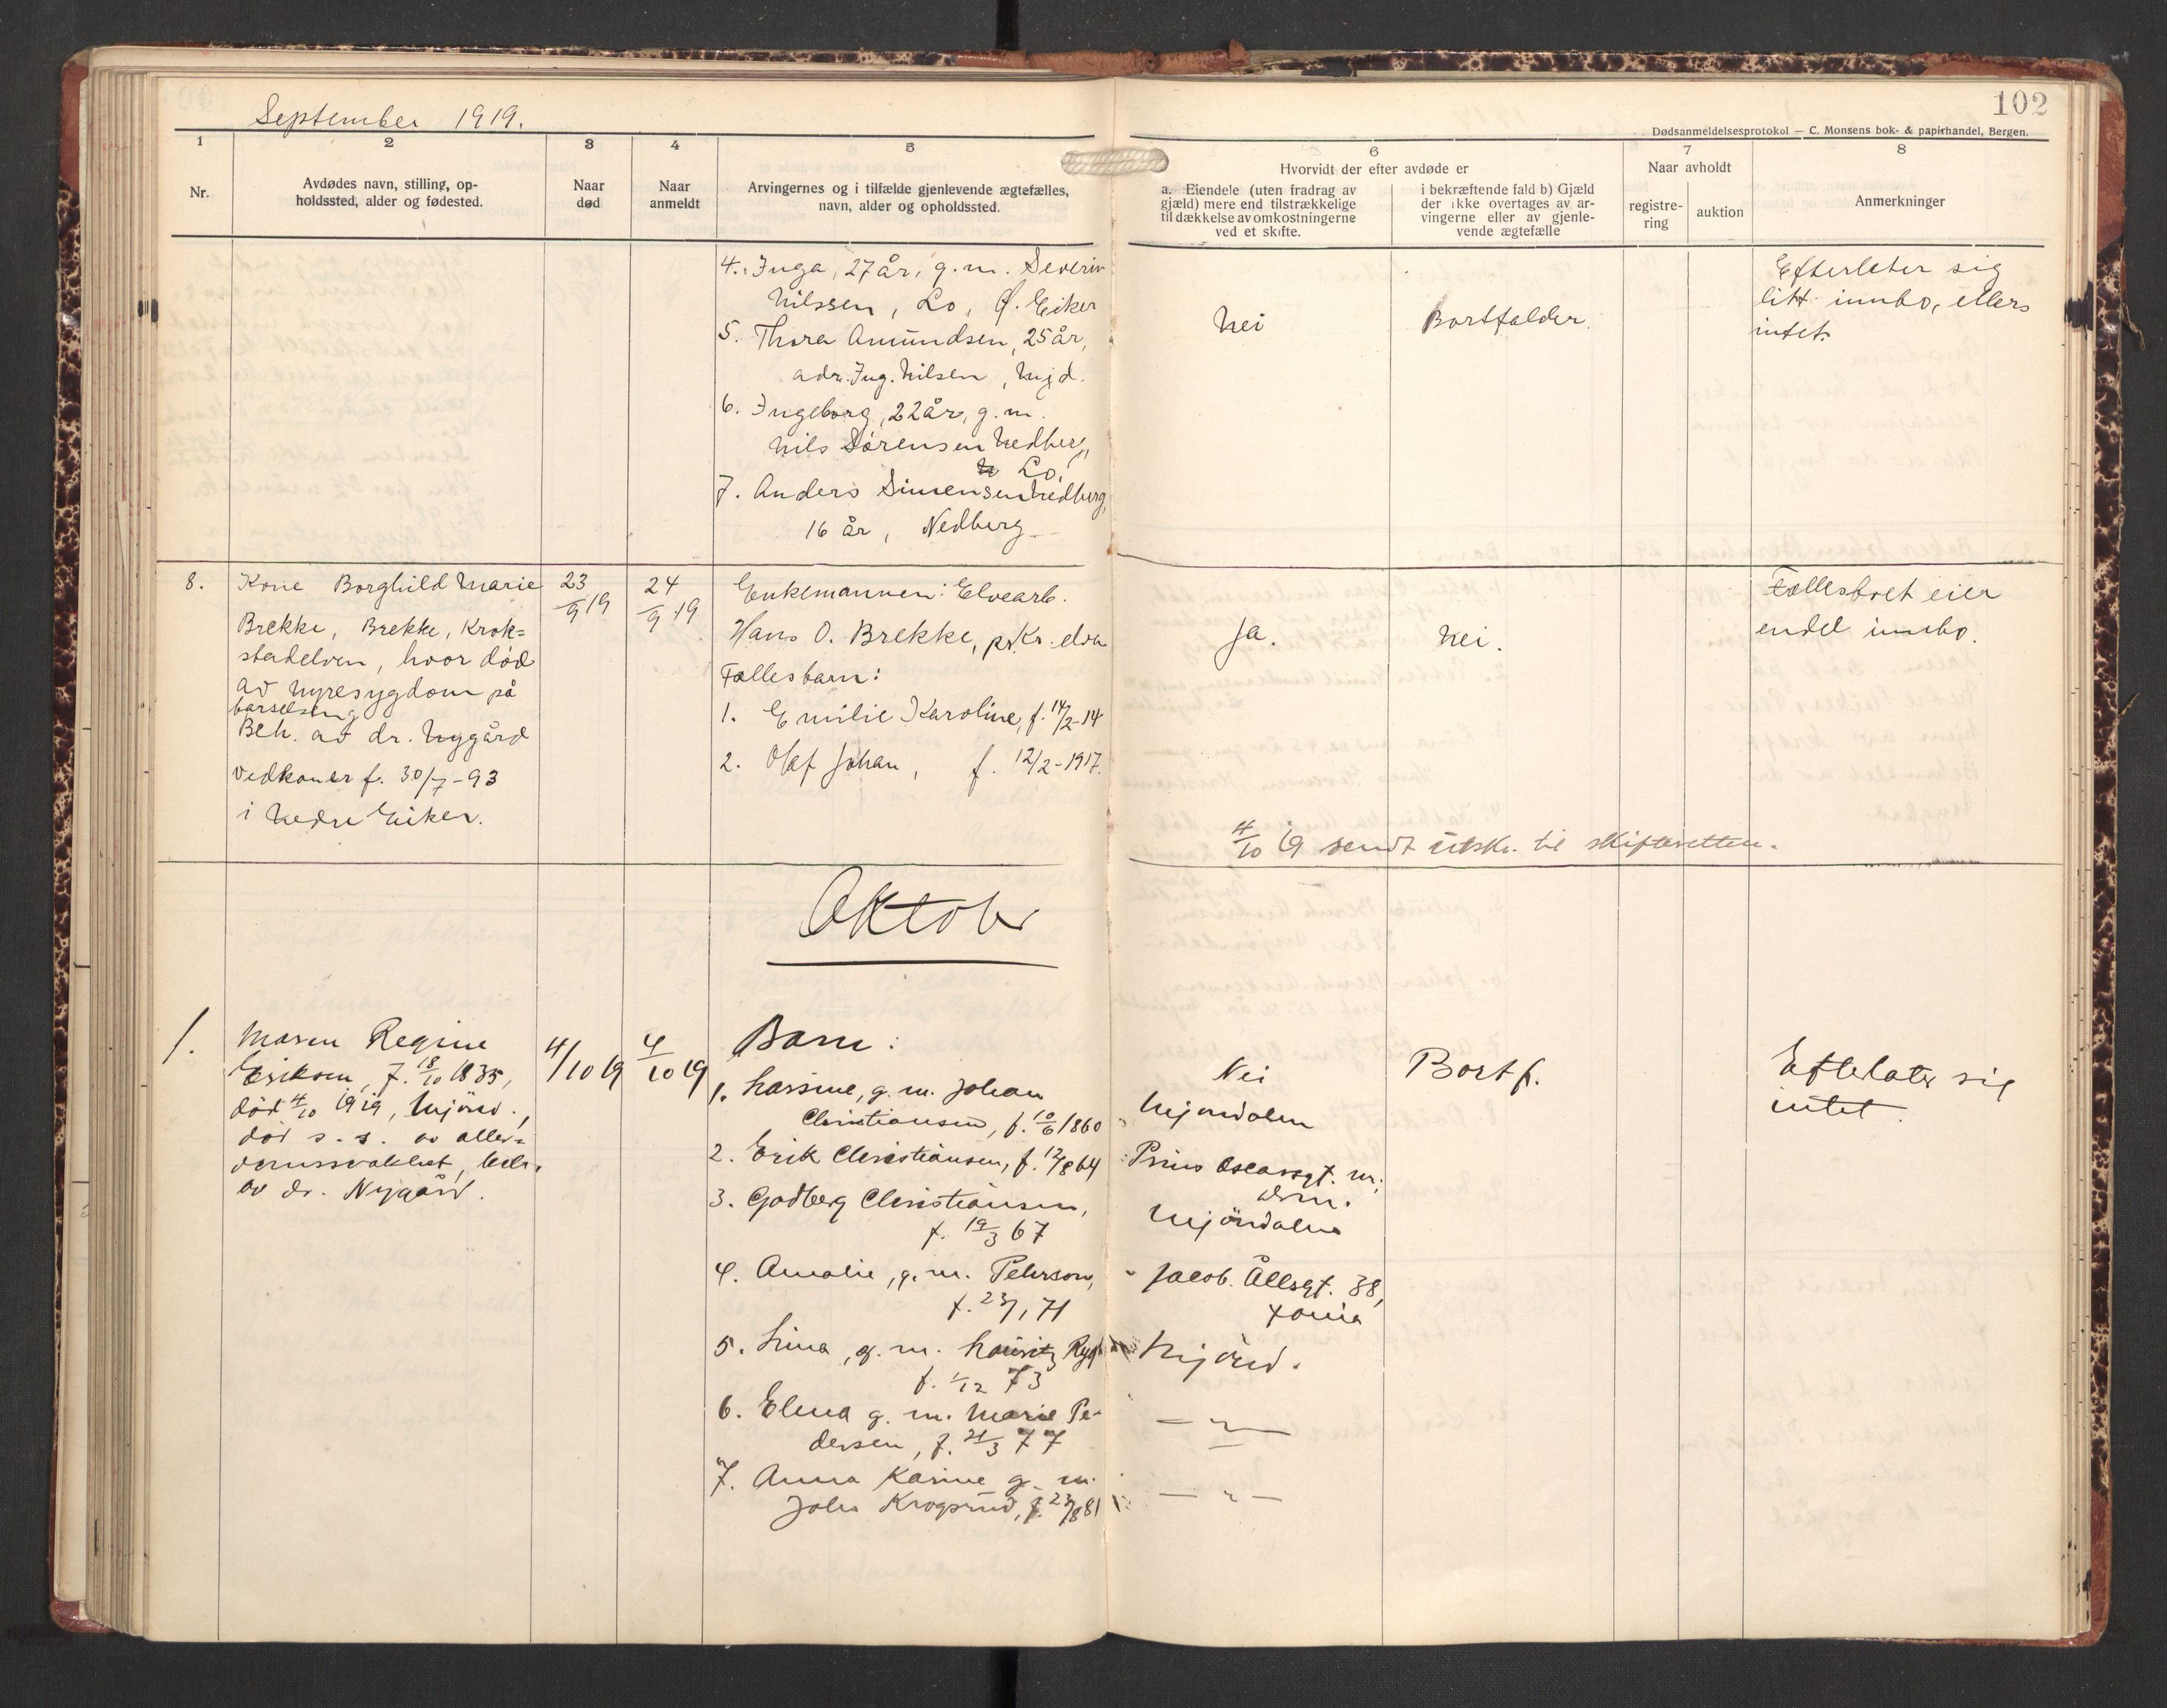 September 1919.
102
Dødsanmeldelsesprotokol — C. Monsens bok- & papirhandel, Bergen.
1
2
3
4
5
6
7
8
Nr.
Avdødes navn, stilling, op-
holdssted, alder og fødested.
Naar
død
Naar
anmeldt
Arvingernes og i tilfælde gjenlevende ægtefælles,
navn, alder og opholdssted.
Hvorvidt der efter avdøde er
a. Eiendele (uten fradrag av
gjæld) mere end tilstrækkelige
til dækkelse av omkostningerne
ved et skifte.
i bekræftende fald b) Gjæld
der ikke overtages av ar-
vingerne eller av gjenle-
vende ægtefælle
Naar avholdt
registre-
ring
auktion
Anmerkninger
4. Inga, 27 år, g.m. Severin
Nilssen, Lo, Ø. Eiker
5. Thora Amundsen, 25 år,
adr. Ing. Nilsen, Mjd.
6. Ingeborg, 22 år, g.m.
Nils Sørensen Nedberg,
Lo,
7. Anders Simensen Nedberg,
16 år, Nedberg
Nei
Bortfalder.
Efterlater sig
litt innbo, ellers
intet.
8.
Kone Borghild Marie
Brekke, Brekke, Krok-
stadelven, hvor død
av nyresygdom på
barselseng
Beh. av dr. Nygård
Vedkom. er f. 30/7-93
i Nedre Eiker.
23/9 19
24/9 19
Enkemannen: Elvearb.
Hans O. Brekke, pr. Kr. elva
Fællesbarn:
1. Emilie Karoline, f. 14/2-14
2. Olaf Johan, f. 12/2-1917.
Ja.
Nei.
Fællesboet eier
endel innbo.
4/10 19 sendt utskr. til skifteretten.
Oktober
1.
Maren Regine
Eriksen, f. 18/10 1835,
død 4/10 1919, Mjönd.,
död s. s. av aller-
domssvakhet, beh.
av dr. Nygård.
4/10 19
4/10 19
Barn:
1. Lassine, g.m. Johan
Christiansen, f. 10/6 1860
Mjøndalen
2. Erik Christiansen, f. 12/8 64
Prins Oscarsgt. nr.
drm.
3. Godberg Christiansen,
f. 19/3 67
Mjöndalen
4. Amalie, g.m. Peterson,
f. 23/1 71
Jacob Ållsgt. 38,
Xania
5. Lina, g.m. Lauritz Rygh
f. 1/12 73
Mjönd.
6. Elena g.m. Marie Pe-
dersen, f. 21/3 77
— " —
7. Anna Karine g.m.
John Krogsrud, f. 23/8 81
— " —
Nei
Bortf.
Efterlater sig
intet.